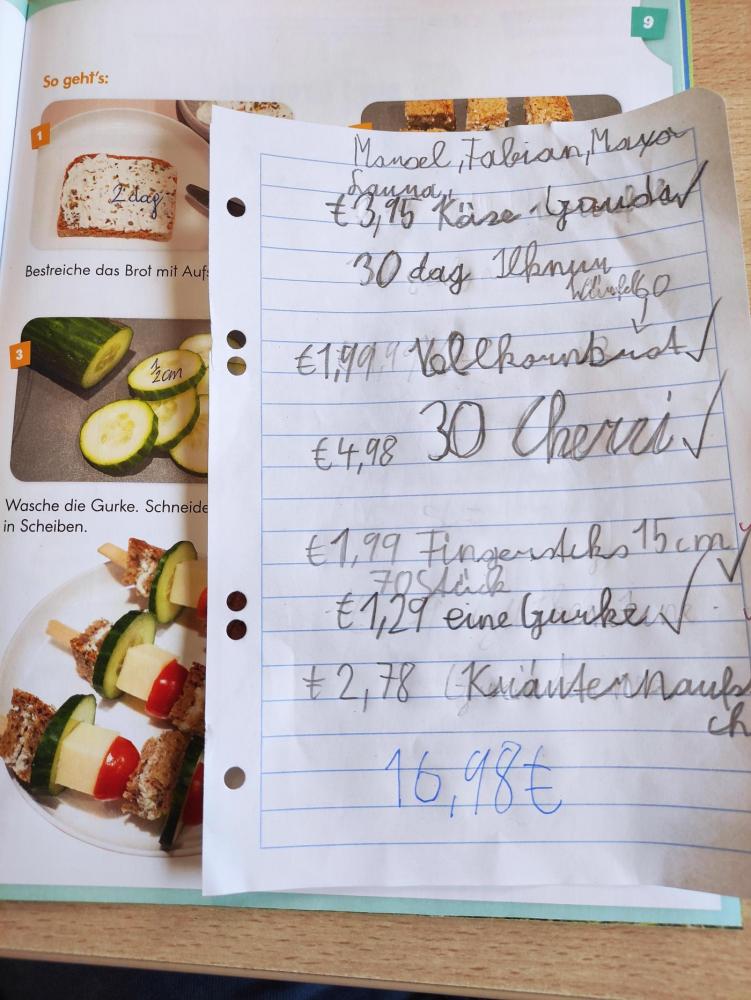 9
So geht's:
1
2 dag
Bestreiche das Brot mit Auf
3
1/2 cm
Wasche die Gurke. Schneide
in Scheiben.
Manoel, Fabian,
€ 3,95 Käse Gouda ✓
30 dag Ilknur
Würfel 60
€ 1,99 Vollkornbrot ✓
€ 4,98 30 Cherri ✓
€ 1,99 Fingersticks 15 cm ✓
70 Stück
€ 1,29 eine Gurke ✓
€ 2,78 Kräuternaufs
ch
16,98 €